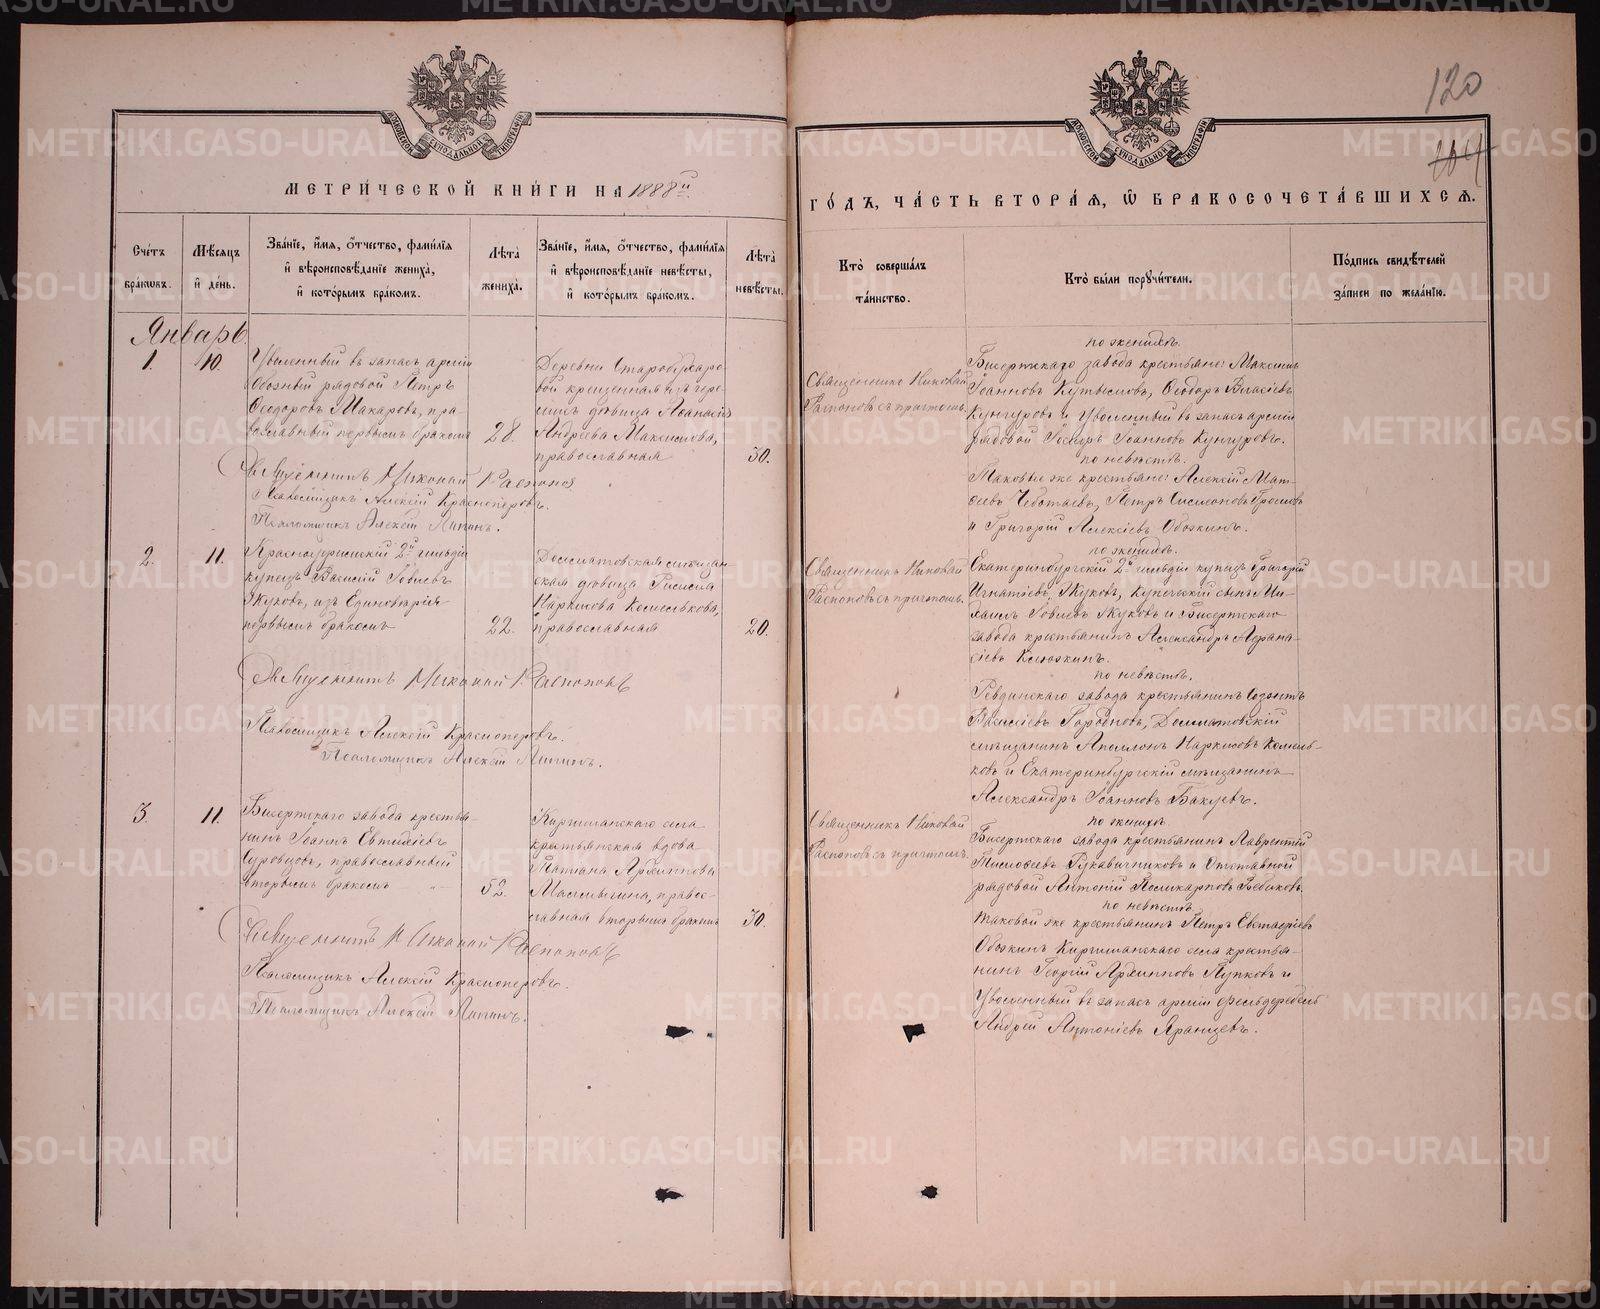 120
104
МЕТРИЧЕСКОЙ КНИГИ НА 1888й
ГОДЪ, ЧАСТЬ ВТОРАЯ, Ѡ БРАКОСОЧЕТАВШИХСЯ.
Счетъ браковъ.
Мѣсяцъ и день.
Званіе, имя, отчество, фамилія и вѣроисповѣданіе жениха, и которымъ бракомъ.
Лѣта жениха.
Званіе, имя, отчество, фамилія и вѣроисповѣданіе невѣсты, и которымъ бракомъ.
Лѣта невѣсты.
Кто совершалъ таинство.
Кто были поручители.
Подпись свидѣтелей записи по желанію.
Январь
1.
10.
Уволенный въ запасъ арміи
Обозный рядовой Петръ
Ѳеодоровъ Макаровъ, пра-
вославный первымъ бракомъ
28.
Деревни
вой крещенная изъ чере-
мисъ дѣвица
Андреева Максимова,
православная
30.
Священникъ Николай
Распоповъ съ причтомъ.
по женихѣ.
Бисертскаго завода крестьяне: Максимъ
Іоанновъ Ѳеодоръ Власіевъ
Кунгуровъ и Уволенный въ запасъ арміи
рядовой Іоанновъ Кунгуровъ.
по невѣстѣ.
Таковые же крестьяне: Алексій Мат-
ѳеевъ Чеботаевъ, Петръ
и Григорій Алексіевъ Обоскинъ.
Священникъ Николай Распоповъ
Псаломщикъ Алексій Красноперовъ.
Псаломщикъ Алексій Липинъ.
2.
11.
Красноуфимскій 2й гильдіи
купецъ Василій Говіевъ
Жуковъ, изъ Единовѣрія
первымъ бракомъ
22.
Долматовская мѣщан-
ская дѣвица
Наркисова
православная
20.
Священникъ Николай
Распоповъ съ причтомъ.
по женихѣ.
Екатеринбургскій 2й гильдіи купецъ Григорій
Игнатіевъ Жуковъ, Купеческій сынъ Ми-
хаилъ Говіевъ Жуковъ и Бисертскаго
завода крестьянинъ Александръ Аѳана-
сіевъ
по невѣстѣ.
Ревдинскаго завода крестьянинъ Созонтъ
Василіевъ Долматовскій
мѣщанинъ Аполлонъ Наркисовъ
ковъ и Екатеринбургскій мѣщанинъ
Александръ Іоанновъ Бакуевъ.
Священникъ Николай Распоповъ
Псаломщикъ Алексій Красноперовъ.
Псаломщикъ Алексій Липинъ.
3.
11.
Бисертскаго завода крестья-
нинъ Іоаннъ Евтихіевъ
Суровцовъ, православный
вторымъ бракомъ
52.
Киргишанскаго села
крестьянская вдова
Татіана Архиппова
право-
славная вторымъ бракомъ
30.
Священникъ Николай
Распоповъ съ причтомъ.
по женихѣ.
Бисертскаго завода крестьянинъ Лаврентій
Тимоѳеевъ Рукавичниковъ и Отставной
рядовой Антоній Поликарповъ
по невѣстѣ.
таковой же крестьянинъ Петръ Евстаѳіевъ
Обоскинъ Киргишанскаго села крестья-
нинъ Георгій Архипповъ Пупковъ и
Уволенный въ запасъ арміи фельдфебель
Андрей Антоніевъ Яранцевъ.
Священникъ Николай Распоповъ
Псаломщикъ Алексій Красноперовъ.
Псаломщикъ Алексій Липинъ.
METRIKI.GASO-URAL.RU